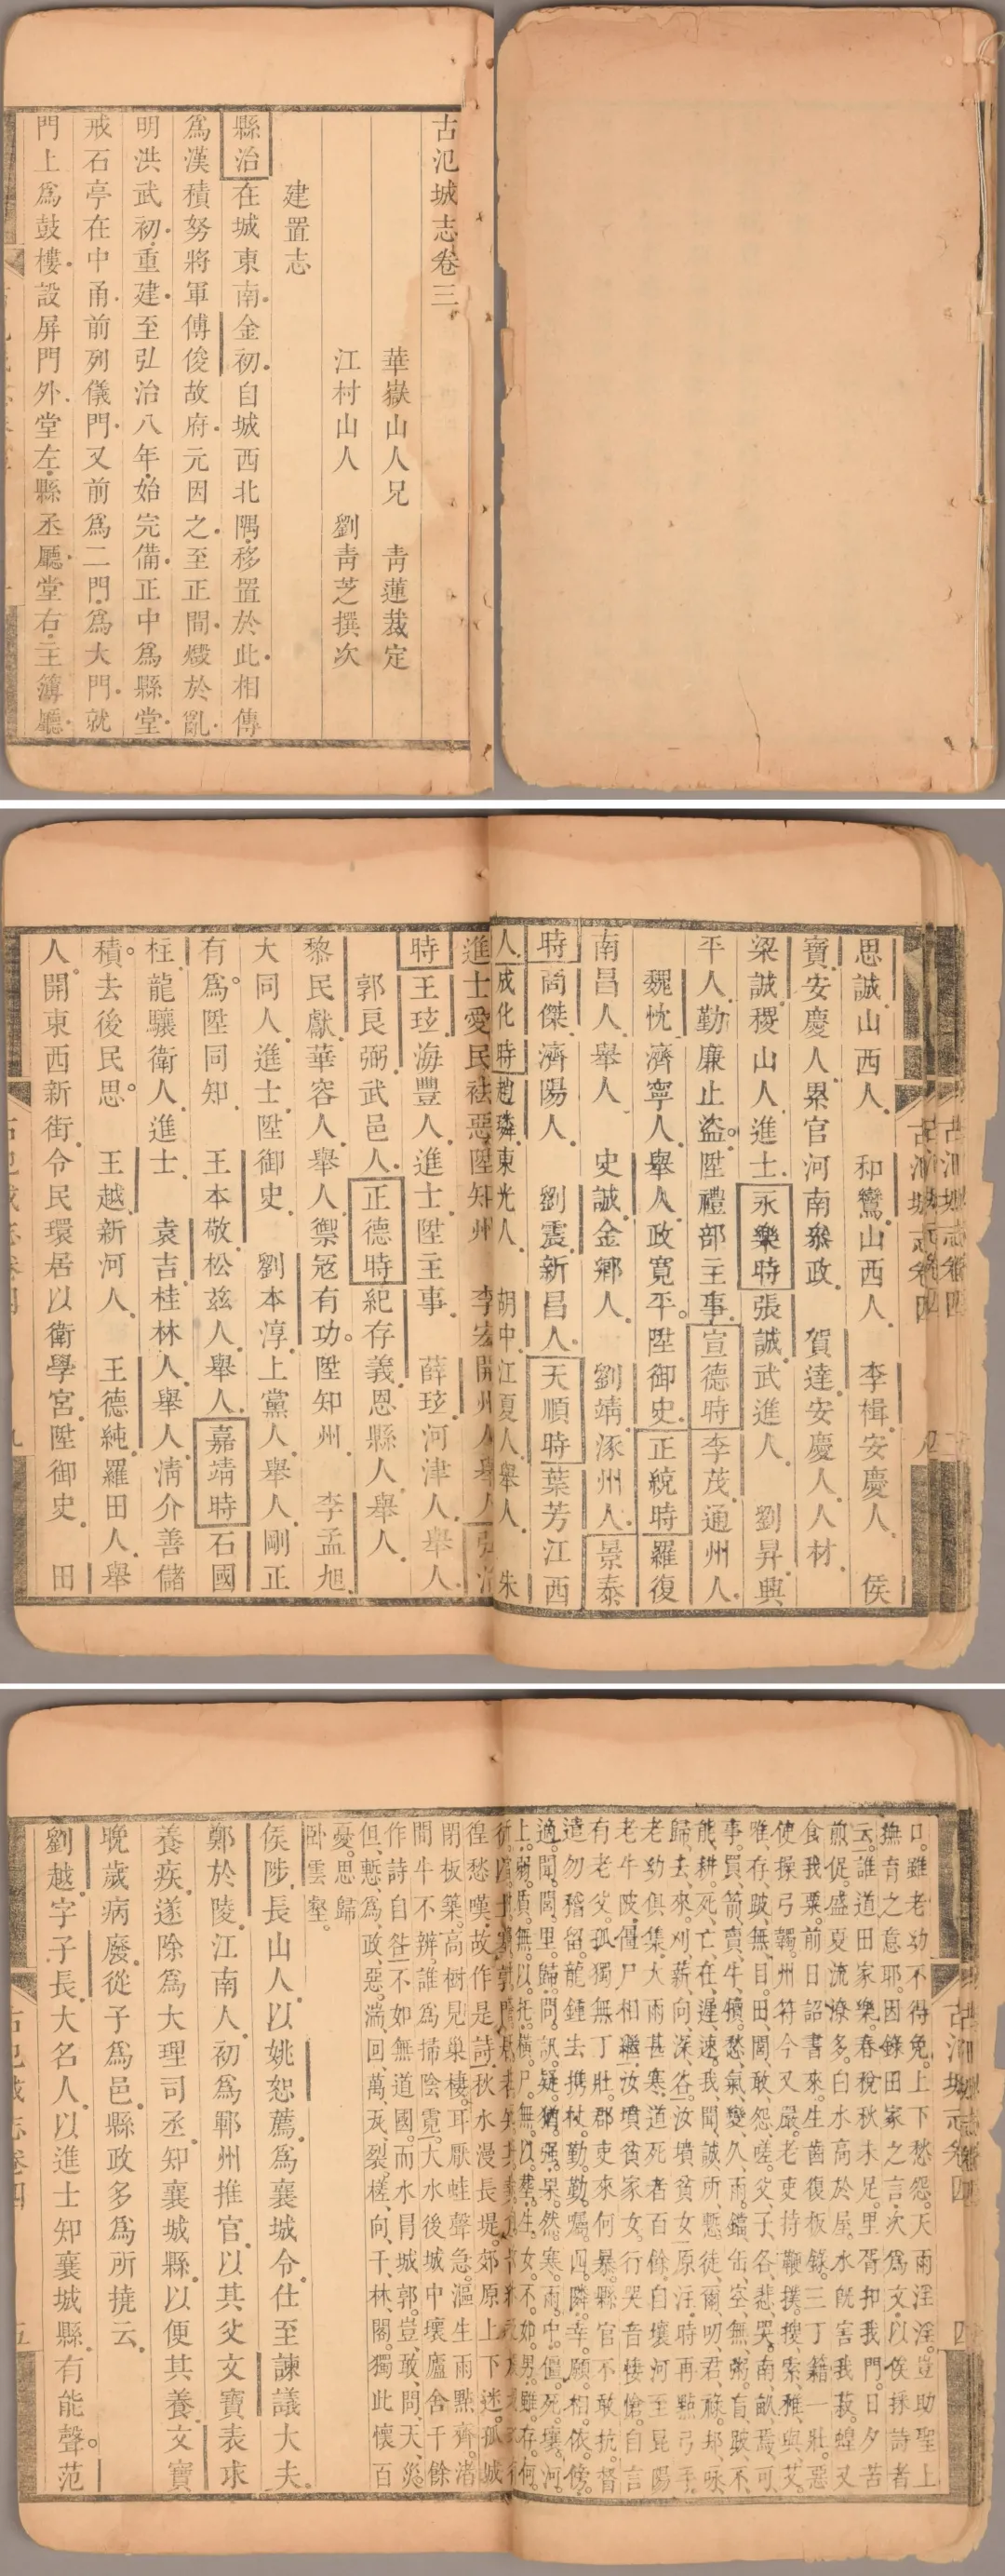 古汜城志卷三
華嶽山人兄　青蓮裁定
江村山人　劉青芝撰次
建置志
縣治在城東南金初自城西北隅移置於此相傳
爲漢積努將軍傅俊故府元因之至正間燬於亂
明洪武初重建至弘治八年始完備正中爲縣堂
戒石亭在中甬前列儀門又前爲二門爲大門就
門上爲鼓樓設屏門外堂左縣丞廳堂右主簿廳
思誠山西人　和鸞山西人　李楫安慶人　侯
寶安慶人累官河南叅政　賀達安慶人人材
梁誠稷山人進士永樂時張誠武進人　劉昇興
平人勤廉止盜陞禮部主事宣德時李茂通州人
魏忱濟寧人舉人政寬平陞御史正統時羅復
南昌人舉人　史誠金鄉人　劉靖涿州人景泰
時尚傑濟陽人　劉震新昌人天順時葉芳江西
人成化時趙璘東光人　胡中江夏人舉人　朱
進士愛民袪惡陞知州　李宏開州人舉人弘治
時王玹海豐人進士陞主事　薛玹河津人舉人
郭良弼武邑人正德時紀存義恩縣人舉人
黎民獻華容人舉人禦冦有功陞知州　李孟旭
大同人進士陞御史　劉本淳上黨人舉人剛正
有爲陞同知　王本敬松兹人舉人嘉靖時石國
柱龍驤衛人進士　袁吉桂林人舉人淸介善儲
積去後民思　王越新河人　王德純羅田人舉
人開東西新街令民環居以衛學宮陞御史　田
口雖老幼不得免上下愁怨天雨淫淫豈助聖上
撫育之意耶因錄田家之言次爲文以俟採詩者
云誰道田家樂春稅秋未足里胥扣我門日夕苦
煎促盛夏流潦多白水高於屋水旣害我菽蝗又
食我粟前日詔書來生齒復板錄三丁籍一壯惡
使操弓韣州符今又嚴老吏持鞭撲搜索稚與艾
唯存跛無目田閭敢怨嗟父子各悲哭南畝焉可
事買箭賣牛犢愁氣變久雨鐺缶空無粥盲跛不
能耕死亡在遲速我聞誠所慙徒爾叨君祿却咏
歸去來刈薪向深谷汝墳貧女原注時再點弓手
老幼俱集大雨甚寒道死者百餘自壤河至昆陽
老牛陂僵尸相繼汝墳貧家女行哭音悽愴自言
有老父孤獨無丁壯郡吏來何暴縣官不敢抗督
遣勿稽留龍鍾去携杖勤勤囑四隣幸願相依傍
適聞閭里歸問訊疑猶强果然寒雨中僵死壤河
上弱質無以托橫尸無以葬生女不如男雖存何
徨愁嘆故作是詩秋水漫長堤郊原上下迷孤城
閉板築高樹見巢棲耳厭蛙聲急漚生雨點齊渚
間牛不辨誰爲掃陰霓大水後城中壞廬舍千餘
作詩自咎不如無道國而水冐城郭豈敢問天災
但慙爲政惡湍回萬瓦裂槎向千林閣獨此懷百
憂思歸
卧雲壑
侯陟長山人以姚恕薦爲襄城令仕至諫議大夫
鄭於陵江南人初爲鄆州推官以其父文寶表求
養疾遂除爲大理司丞知襄城縣以便其養文寶
晚歲病廢從子爲邑縣政多爲所撓云
劉越字子長大名人以進士知襄城縣有能聲范